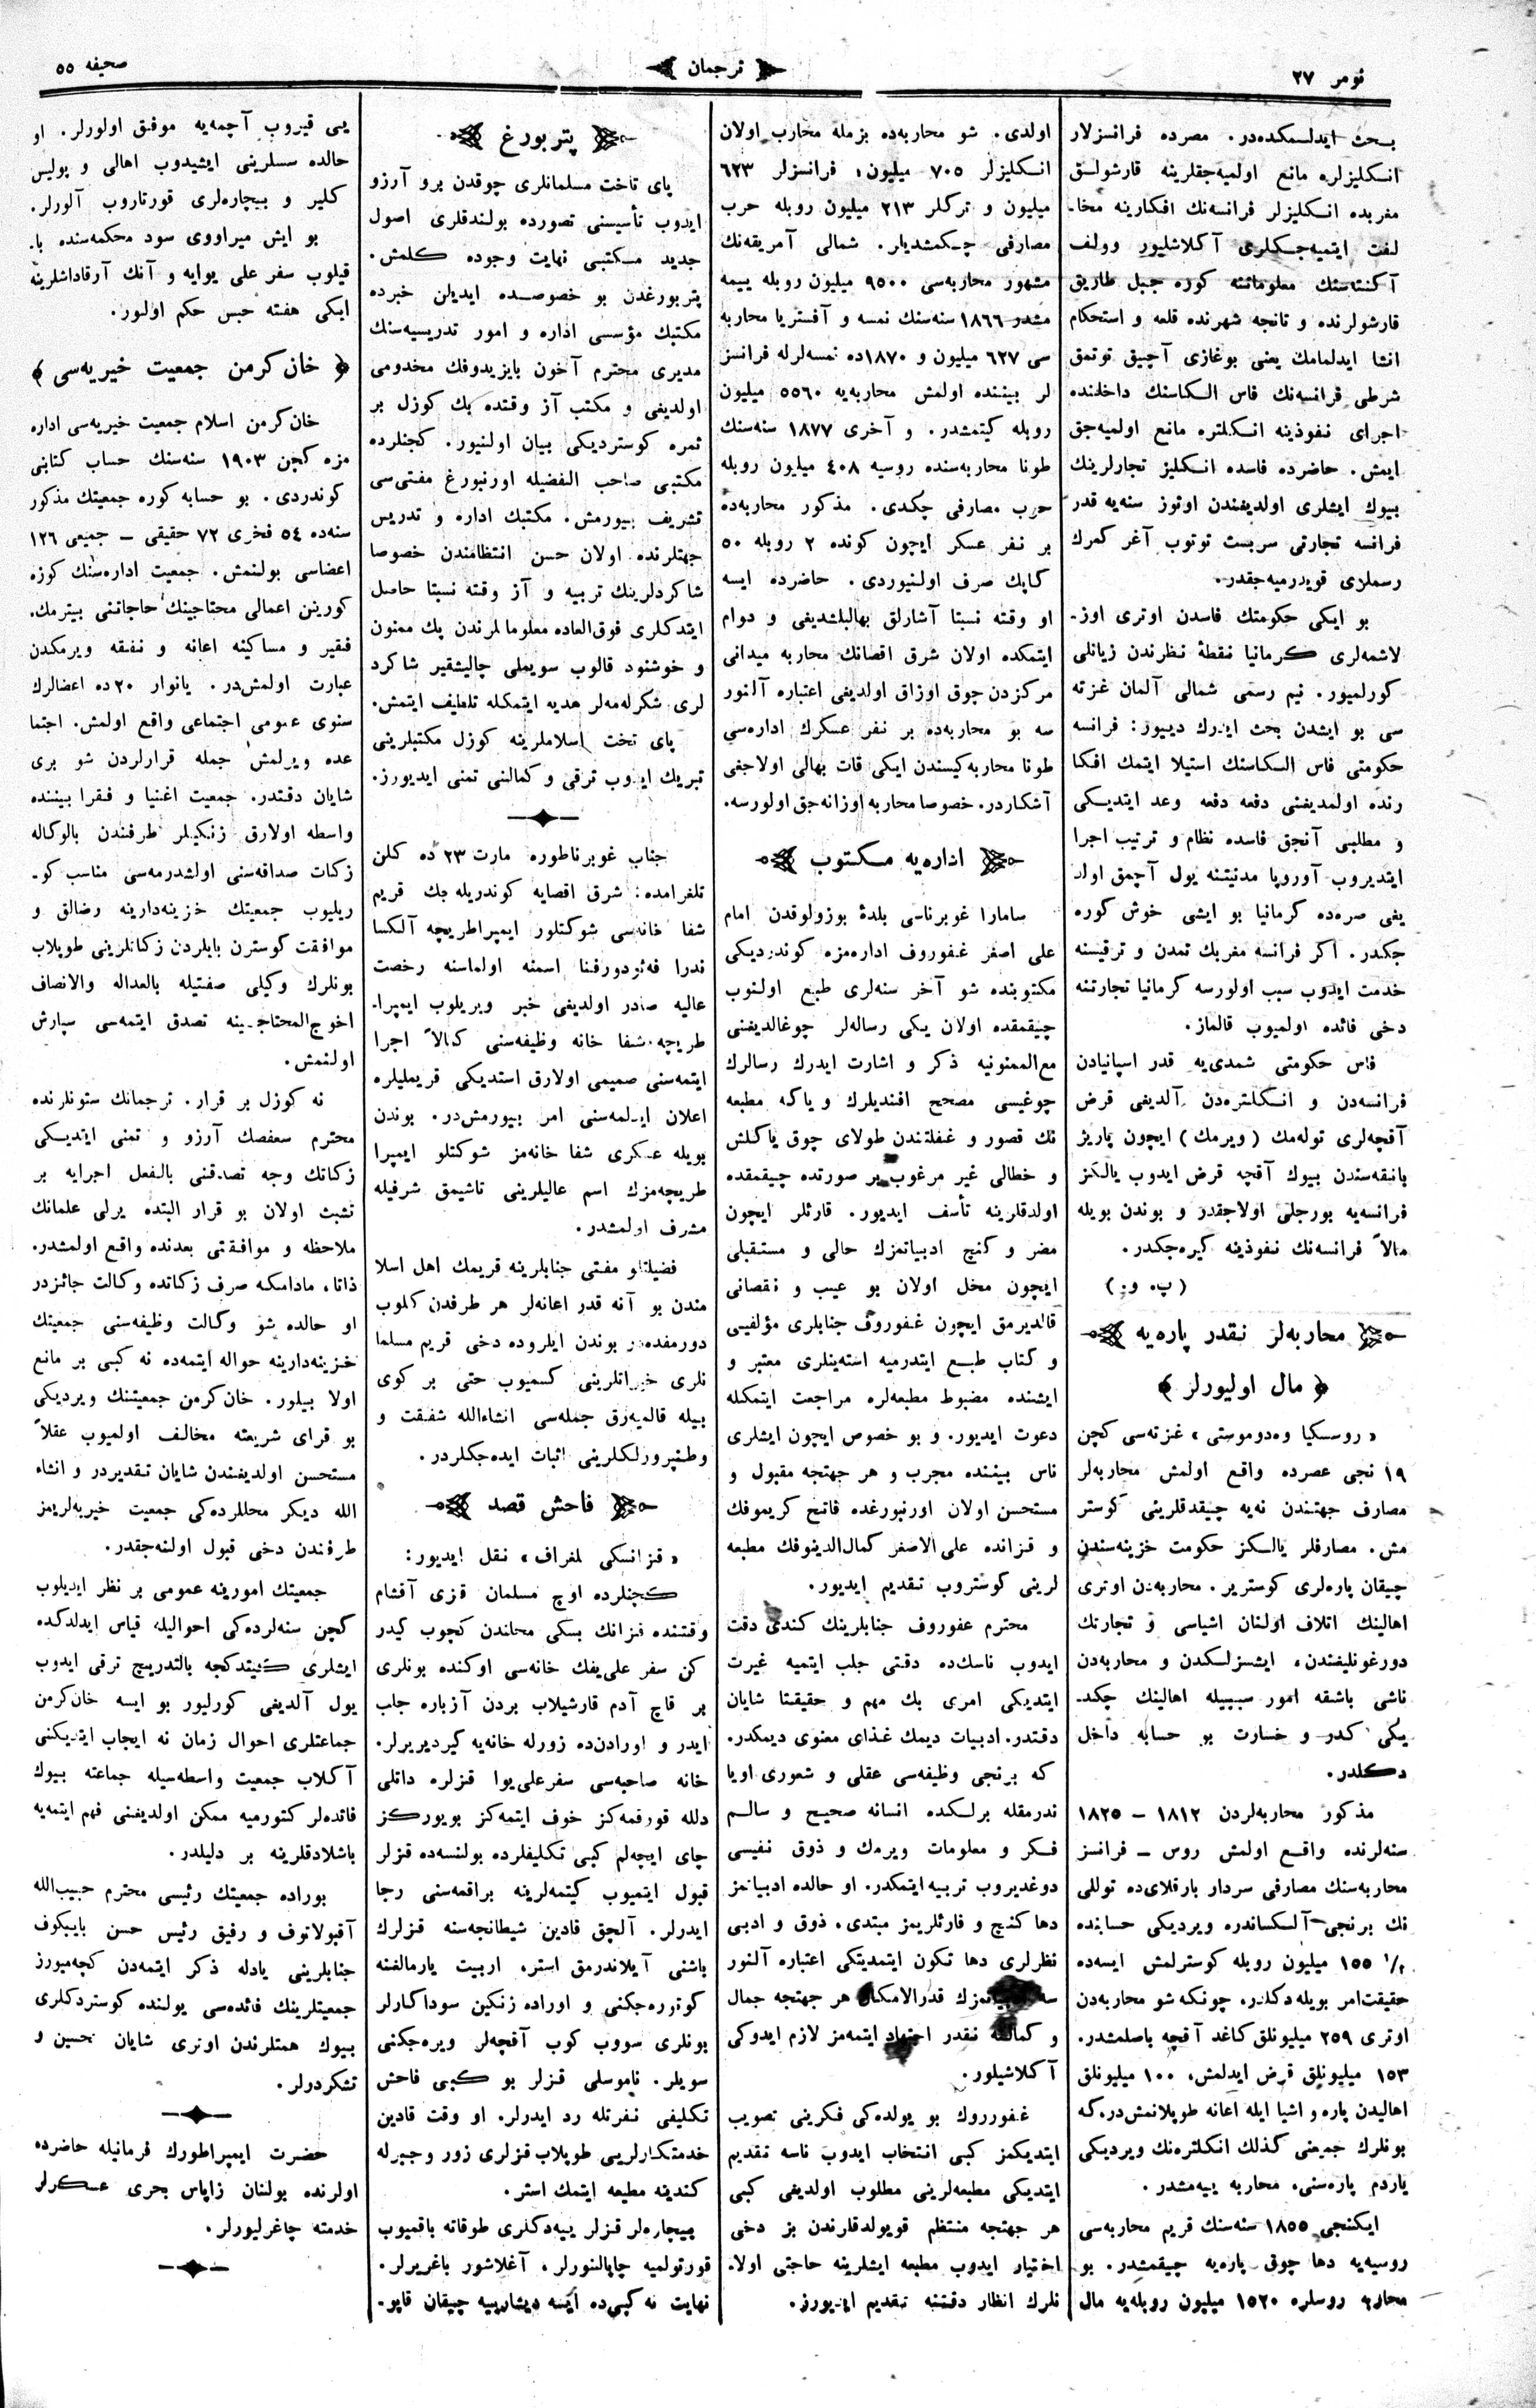 نومر ٢٧
ترجمان
صحیفه ٥٥
بحث ایدلمكده‌در. مصرده فرانسزلار
انكلیزلره مانع اولمیه‌جقلرینه قارشولق
مغربده انكلیزلر فرانسه‌نك افكارینه مخا-
لفت ایتمیه‌جكلری آكلاشلیور وولف
آكنتاسنك معلوماتنه كوره جبل طاریق
قارشولرنده و تانجه شهرنده قلعه و استحكام
انشا ایدلمامك یعنی بوغازی آچیق توتمق
شرطی فرانسه‌نك فاس الكاسنك داخلنده
اجرای نفوذینه انكلتره مانع اولمیه‌جق
ایمش. حاضرده فاسده انكلیز تجارلرینك
بیوك ایشلری اولدیغندن اوتوز سنه‌یه قدر
فرانسه تجارتی سربست توتوب آغر كمرك
رسملری قویدرمیه‌جقدر.
بو ایكی حكومتك فاسدن اوتری اوز-
لاشمه‌لری كرمانیا نقطهٔ نظرندن زیانلی
كورلمیور. نیم رسمی شمالی آلمان غزته
سی بو ایشدن بحث ایدرك دییور: فرانسه
حكومتی فاس الكاسنك استیلا ایتمك افكا
رنده اولمدیغنی دفعه دفعه وعد ایتدیكی
و مطلبی آنجق فاسده نظام و ترتیب اجرا
ایتدیروب آوروپا مدنیتنه یول آچمق اولد
یغی صره‌ده كرمانیا بو ایشی خوش كوره
جكدر. اكر فرانسه مغربك تمدن و ترقیسنه
خدمت ایدوب سبب اولورسه كرمانیا تجارتنه
دخی فائده اولمیوب قالماز.
فاس حكومتی شمدی‌یه قدر اسپانیادن
فرانسه‌دن و انكلتره‌دن آلدیغی قرض
آقچه‌لری توله‌مك (ویرمك) ایچون پاریژ
بانقه‌سندن بیوك آقچه قرض ایدوب یالكز
فرانسه‌یه بورجلی اولاجقدر و بوندن بویله
مالاً فرانسه‌نك نفوذینه كیره‌جكدر.
(پ. و.)
محاربه‌لر نقدر پاره‌یه
﴿ مال اولیورلر ﴾
«روسكیا وه‌دوموستی» غزته‌سی كچن
١٩ نجی عصرده واقع اولمش محاربه‌لر
مصارف جهتندن نه‌یه چیقدقلرینی كوستر
مش. مصارفلر یالكز حكومت خزینه‌سندن
چیقان پاره‌لری كوستریر. محاربه‌دن اوتری
اهالینك اتلاف اولنان اشیاسی و تجارتك
دورغونلیغندن، ایشسزلكدن و محاربه‌دن
ناشی باشقه امور سببیله اهالینك چكد-
یكی كدر و خسارت بو حسابه داخل
دكلدر.
مذكور محاربه‌لردن ١٨١٢ - ١٨٢٥
سنه‌لرنده واقع اولمش روس - فرانسز
محاربه‌سنك مصارفی سردار بارقلای‌ده توللی
نك برنجی آلكساندره ویردیكی حسابنده
١٥٥ میلیون روبله كوسترلمش ایسه‌ده
حقیقت‌امر بویله دكلدر. چونكه شو محاربه‌دن
اوتری ٢٥٩ میلیونلق كاغد آقچه باصلمشدر.
١٥٣ میلیونلق قرض ایدلمش، ١٠٠ میلیونلق
اهالیدن پاره و اشیا ایله اعانه طوپلانمش‌در.كه
بونلرك جمیعنی كذلك انكلتره‌نك ویردیكی
یاردم پاره‌سنی، محاربه ییه‌مشدر.
ایكنجی ١٨٥٥ سنه‌سنك قریم محاربه‌سی
روسیه‌یه دها چوق پاره‌یه چیقمشدر. بو
محاربه روسلره ١٥٢٠ میلیون روبله‌یه مال
اولدی. شو محاربه‌ده بزمله محارب اولان
انكلیزلر ٧٠٥ میلیون، فرانسزلر ٦٢٣
میلیون و تركلر ٢١٣ میلیون روبله حرب
مصارفی چكمشدیلر. شمالی آمریقه‌نك
مشهور محاربه‌سی ٩٥٠٠ میلیون روبله ییمه
مشدر ١٨٦٦ سنه‌سنك نمسه و آفستریا محاربه
سی ٦٢٧ میلیون و ١٨٧٠ده نمسه‌لرله فرانسز
لر بیننده اولمش محاربه‌یه ٥٥٦٠ میلیون
روبله كیتمشدر. و آخری ١٨٧٧ سنه‌سنك
طونا محاربه‌سنده روسیه ٤٠٨ میلیون روبله
حرب مصارفی چكدی. مذكور محاربه‌ده
بر نفر عسكر ایچون كونده ٢ روبله ٥٠
كاپك صرف اولنیوردی. حاضرده ایسه
او وقته نسبتا آشارلق بهالیلشدیغی و دوام
ایتمكده اولان شرق اقصانك محاربه میدانی
مركزدن چوق اوزاق اولدیغی اعتباره آلنور
سه بو محاربه‌ده بر نفر عسكرك اداره‌سی
طونا محاربه‌كیسندن ایكی قات بهالی اولاجغی
آشكاردر. خصوصا محاربه اوزانه‌جق اولورسه.
اداره‌یه مكتوب
سامارا غوبرناسی بلدهٔ بوزولوقدن امام
علی اصغر غفوروف اداره‌مزه كوندردیكی
مكتوبنده شو آخر سنه‌لری طبع اولنوب
چیقمقده اولان یكی رساله‌لر چوغالدیغنی
مع‌الممنونیه ذكر و اشارت ایدرك رسالرك
چوغیسی مصحح افندیلرك و یاكه مطبعه
نك قصور و غفلتندن طولای چوق یاكلش
و خطالی غیر مرغوب بر صورتده چیقمقده
اولدقلرینه تأسف ایدیور. قارئلر ایچون
مضر و كنج ادبیاتمزك حالی و مستقبلی
ایچون مخل اولان بو عیب و نقصانی
قالدیرمق ایچون غفوروف جنابلری مؤلفینی
و كتاب طبع ایتدرمیه استه‌ینلری معتبر و
ایشنده مضبوط مطبعه‌لره مراجعت ایتمكله
دعوت ایدیور. و بو خصوص ایچون ایشلری
ناس بیننده مجرب و هر جهتجه مقبول و
مستحسن اولان اورنبورغده فاتح كریموفك
و قزانده علی‌الاصغر كمال‌الدینوفك مطبعه
لرینی كوستروب تقدیم ایدیور.
محترم عفوروف جنابلرینك كندی دقت
ایدوب ناسك‌ده دقتی جلب ایتمیه غیرت
ایتدیكی امری بك مهم و حقیقتا شایان
دقتدر. ادبیات دیمك غذای معنوی دیمكدر.
كه برنجی وظیفه‌سی عقلی و شعوری اویا
ندرمقله برلكده انسانه صحیح و سالم
فكر و معلومات ویرمك و ذوق نفیسی
دوغدیروب تربیه ایتمكدر. او حالده ادبیاتمز
دها كنج و قارئلریمز مبتدی، ذوق و ادبی
نظرلری دها تكون ایتمدیتكی اعتباره آلنور
قدرالامكان هر جهتجه جمال
و كمالنه نقدر اجتهاد ایتمه‌مز لازم ایدوكی
آكلاشیلور.
غفوروك بو یولده‌كی فكرینی تصویب
ایتدیكمز كبی انتخاب ایدوب ناسه تقدیم
ایتدیكی مطبعه‌لرینی مطلوب اولدیغی كبی
هر جهتجه منتظم قویولدقلرندن بز دخی
اختیار ایدوب مطبعه ایشلرینه حاجتی اولا-
نلرك انظار دقتنه تقدیم ایدیورز.
پتربورغ
پای تاخت مسلمانلری چوقدن برو آرزو
ایدوب تأسیسنی تصورده بولندقلری اصول
جدید مكتبی نهایت وجوده كلمش.
پتربورغدن بو خصوصده ایدیلن خبرده
مكتبك مؤسسی اداره و امور تدریسیه‌سنك
مدیری محترم آخون بایزیدوفك مخدومی
اولدیغی و مكتب آز وقتده بك كوزل بر
ثمره كوستردیكی بیان اولنیور. كچنلرده
مكتبی صاحب الفضیله اورنبورغ مفتی‌سی
تشریف بیورمش. مكتبك اداره و تدریس
جهتلرنده اولان حسن انتظامندن خصوصا
شاكردلرینك تربیه و آز وقتنه نسبتا حاصل
ایتدكلری فوق‌العاده معلوماتلرندن پك ممنون
و خوشنود قالوب سویملی چالیشقیر شاكرد
لری شكرله‌مه‌لر هدیه ایتمكله تلطیف ایتمش.
پای تخت اسلاملرینه كوزل مكتبلرینی
تبریك ایدوب ترقی و كمالنی تمنی ایدیورز.
جناب غوبرناطوره مارت ٢٣ ده كلن
تلغرامده: شرق اقصایه كوندریله‌جك قریم
شفا خانه‌سی شوكتلور ایمپراطریچه آلكسا
ندرا فه‌ئودورفنا اسمنه اولماسنه رخصت
عالیه صادر اولدیغی خبر ویریلوب ایمپرا-
طریچه شفا خانه وظیفه‌سنی كمالاً اجرا
ایتمه‌سنی صمیمی اولارق استدیكی قریملیلره
اعلان ایدلمه‌سنی امر بیورمش‌در. بوندن
بویله عسكری شفا خانه‌مز شوكتلو ایمپرا
طریچه‌مزك اسم عالیلرینی تاشیمق شرفیله
مشرف اولمشدر.
فضیلتلو مفتی جنابلرینه قریمك اهل اسلا
مندن بو آنه قدر اعانه‌لر هر طرفدن كلوب
دورمقده‌در بوندن ایلروده دخی قریم مسلما
نلری خیراتلرینی كسمیوب حتی بر كوی
بیله قالمیه‌رق جمله‌سی انشاءالله شفقت و
وطنپرورلكلرینی اثبات ایده‌جكلردر.
فاحش قصد
«قزانسكی تلغراف» نقل ایدیور:
كچنلرده اوچ مسلمان قزی آقشام
وقتنده قزانك بسكی محاندن كچوب كیدر
كن سفر علی‌یفك خانه‌سی اوكنده بونلری
بر قاچ آدم قارشیلاب بردن آزباره جلب
ایدر و اورادن‌ده زورله خانه‌یه كیردیریرلر.
خانه صاحبه‌سی سفرعلی‌یوا قزلره داتلی
دلله قورقمه‌كز خوف ایتمه‌كز بویورڭز
چای ایچه‌لم كبی تكلیفلرده بولنسه‌ده قزلر
قبول ایتمیوب كیتمه‌لرینه براقمه‌سنی رجا
ایدرلر. آلچق قادین شیطانجه‌سنه قزلرك
باشنی آیلاندرمق استر، اربیت یارمالغنه
كوتوره‌جكنی و اوراده زنكین سوداكارلر
بونلری سووب كوب آقچه‌لر ویره‌جكنی
سویلر. ناموسلی قزلر بو كبی فاحش
تكلیفی نفرتله رد ایدرلر. او وقت قادین
خدمتكارلریی طوپلاب قزلری زور وجبرله
كندینه مطیعه ایتمك استر.
بیچاره‌لر قزلر ییه‌دكلری طوقاته باقمیوب
قورتولمیه چاپالنورلر، آغلاشور باغریرلر.
نهایت نه كبی‌ده ایسه دیشاریه چیقان قاپو-
یی قیروب آچمه‌یه موفق اولورلر. او
حالده سسلرینی ایشیدوب اهالی و پولیس
كلیر و بیچاره‌لری قورتاروب آلورلر.
بو ایش میراووی سود محكمه‌سنده با-
قیلوب سفر علی یوایه و آنك آرقاداشلرینه
ایكی هفته حبس حكم اولنور.
﴿ خان كرمن جمعیت خیریه‌سی ﴾
خان‌كرمن اسلام جمعیت خیریه‌سی اداره
مزه كچن ١٩٠٣ سنه‌سنك حساب كتابنی
كوندردی. بو حسابه كوره جمعیتك مذكور
سنه‌ده ٥٤ فخری ٧٢ حقیقی - جمیعی ١٢٦
اعضاسی بولنمش. جمعیت اداره‌سنك كوزه
كورینن اعمالی محتاجینك حاجاتنی بیترمك.
فقیر و مساكینه اعانه و نفقه ویرمكدن
عبارت اولمش‌در. یانوار ٢٠ده اعضالرك
سنوی عمومی اجتماعی واقع اولمش. اجتما
عده ویرلمش جمله قرارلردن شو بری
شایان دقتدر. جمعیت اغنیا و فقرا بیننده
واسطه اولارق زنكیلر طرفندن بالوكاله
زكات صداقه‌سنی اولشدرمه‌سی مناسب كو-
ریلیوب جمعیتك خزینه‌دارینه رضالق و
موافقت كوسترن بایلردن زكاتلرینی طوپلاب
بونلرك وكیلی صفتیله بالعداله والانصاف
احوج‌المحتاجینه تصدق ایتمه‌سی سپارش
اولنمش.
نه كوزل بر قرار. ترجمانك ستونلرنده
محترم سعفصك آرزو و تمنی ایتدیكی
زكاتك وجه تصدقنی بالفعل اجرایه بر
تشبث اولان بو قرار البتده یرلی علمانك
ملاحظه و موافقتی بعدنده واقع اولمشدر.
ذاتا، مادامكه صرف زكاتده وكالت جائزدر
او حالده شو وكالت وظیفه‌سنی جمعیتك
خزینه‌دارینه حواله ایتمه‌ده نه كبی بر مانع
اولا بیلور. خان‌كرمن جمعیتنك ویردیكی
بو قرای شریعته مخالف اولمیوب عقلاً
مستحسن اولدیغندن شایان تقدیردر و انشاء
الله دیكر محللرده‌كی جمعیت خیریه‌لریمز
طرفندن دخی قبول اولنه‌جقدر.
جمعیتك امورینه عمومی بر نظر ایدیلوب
كچن سنه‌لرده‌كی احوالیله قیاس ایدلدكده
ایشلری كیتدكجه بالتدریج ترقی ایدوب
یول آلدیغی كورلیور بو ایسه خان‌كرمن
جماعتلری احوال زمان نه ایجاب ایتدیكنی
آكلاب جمعیت واسطه‌سیله جماعته بیوك
فائده‌لر كتورمیه ممكن اولدیغنی فهم ایتمه‌یه
باشلادقلرینه بر دلیلدر.
بوراده جمعیتك رئیسی محترم حبیب‌الله
آقبولاتوف و رفیق رئیس حسن بایبكوف
جنابلرینی یادله ذكر ایتمه‌دن كچه‌میورز
جمعیتلرینك فائده‌سی یولنده كوستردكلری
بیوك همتلرندن اوتری شایان تحسین و
تشكردرلر.
حضرت ایمپراطورك فرمانیله حاضرده
اولرنده بولنان زاپاس بحری عسكرلر
خدمته چاغرلیورلر.